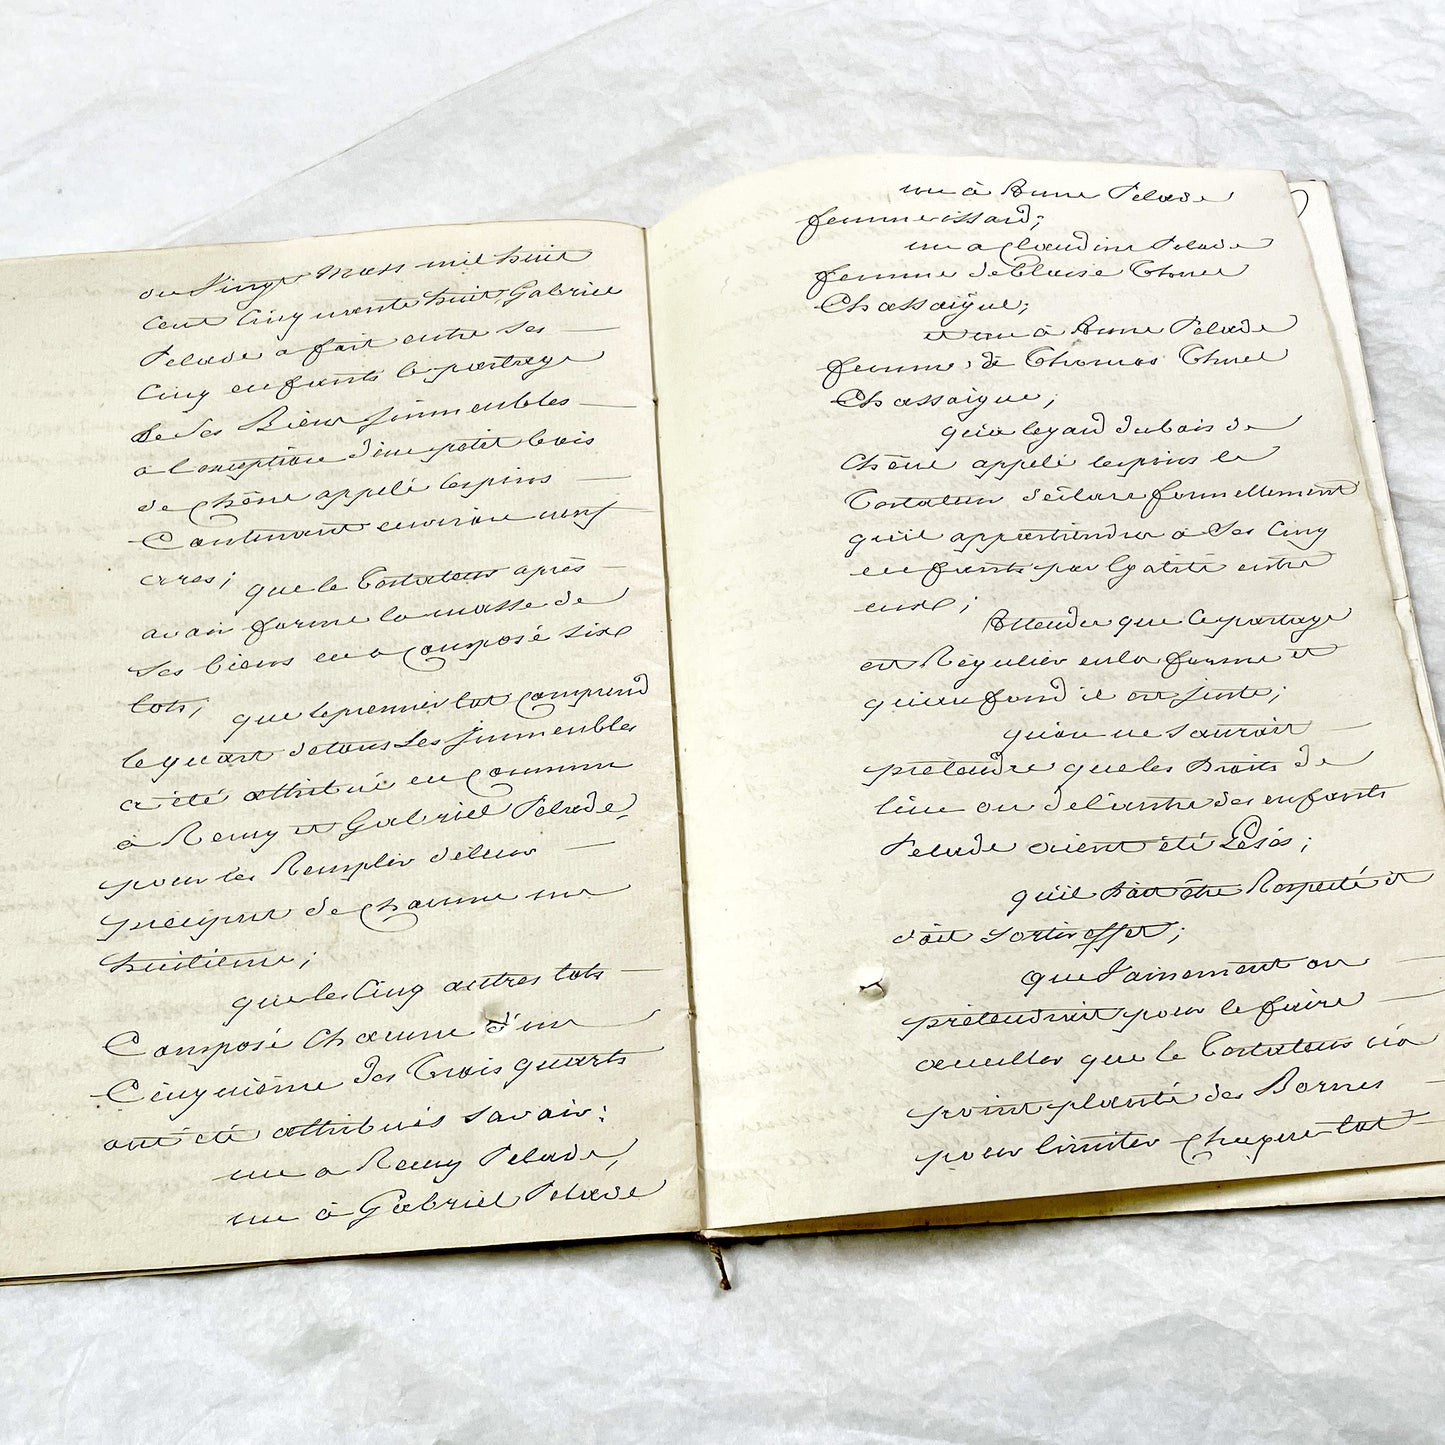 du Vingt Mars mil huit
cent Cinquante huit, Gabriel
Pelade a fait entre ses
Cinq enfants le partage
de ses Biens Immeubles
a l'exception d'un petit bois
de Chêne appelé lespins
Contenant environ neuf
ares;
que le Testateur après
avoir formé la masse de
ses biens en a Composé six
lots;
que le premier lot Comprend
le quart de tous les Immeubles
a été attribué en Commun
à Remy et Gabriel Pelade,
pour les Remplir de leur
préciput de Chacun un
huitième;
que les Cinq autres lots
Composé Chacun d'un
Cinquième des Trois quarts
ont été attribués savoir:
un a Remy Pelade,
un à Gabriel Pelade
un à Anne Pelade
femme issard;
un a Claudine Pelade
femme de Blaise Thuel
Chassaigne;
et un à Anne Pelade
femme de Thomas Thuel
Chassaigne;
qu'a legard du bois de
Chêne appelé lespins le
Testateur déclare formellement
qu'il appartiendra a Ses Cinq
enfants par Egalité entre
eux;
Attendu que le partage
est Régulier en la forme et
qu'au fond il est juste;
qu'on ne saurait
prétendre que les Droits de
l'un ou de l'autre des enfants
Pelade aient été Lésés;
qu'il doit être Respecté et
doit sortir effet;
que Vainement on
prétendrait pour le faire
annuller que le Testateur n'a
point planté des Bornes
pour limiter Chaque lot